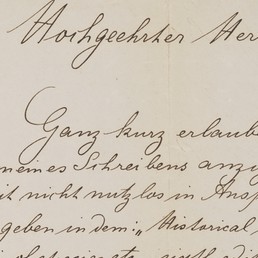 Hochgeehrter Her
Ganz kurz erlaube
meines Schreibens anzu
it nicht nutzlos in Ansp
geben in dem: „Historical